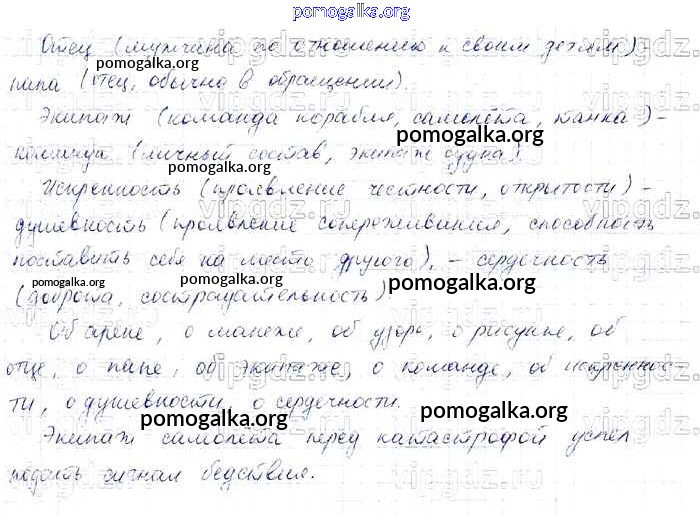 pomogalka.org
Отец (мужчина по отношению к своим детям) -
папа (отец, обычно в обращении).
Экипаж (команда корабля, самолёта, танка) -
команда (личный состав, экипаж судна).
Искренность (проявление честности, открытости) -
душевность (проявление сопереживания, способность
поставить себя на место другого), - сердечность
(доброта, сострадательность)
Об арене, о манеже, об узоре, о рисунке, об
отце, о папе, об экипаже, о команде, об искреннос-
ти, о душевности, о сердечности.
Экипаж самолета перед катастрофой успел
подать сигнал бедствия.
pomogalka.org
pomogalka.org
pomogalka.org
pomogalka.org
pomogalka.org
pomogalka.org
pomogalka.org
vipgdz.ru